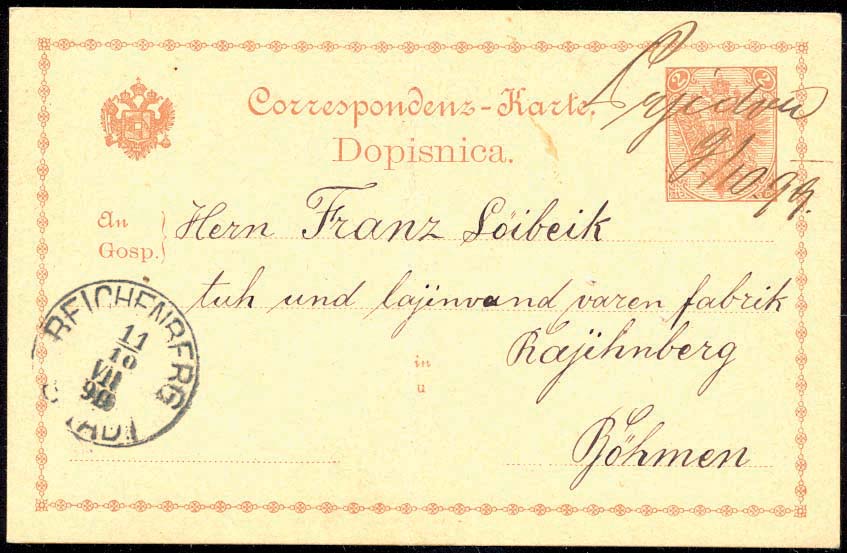 2 2
Correspondenz-Karte.
Dopisnica.
9/10 99.
An
Gosp.
Herrn Franz Löibeik
tuh und lajinvand varen fabrik
in
u
Rajihnberg
Böhmen
REICHENBERG
11
10
VII
99
STADT